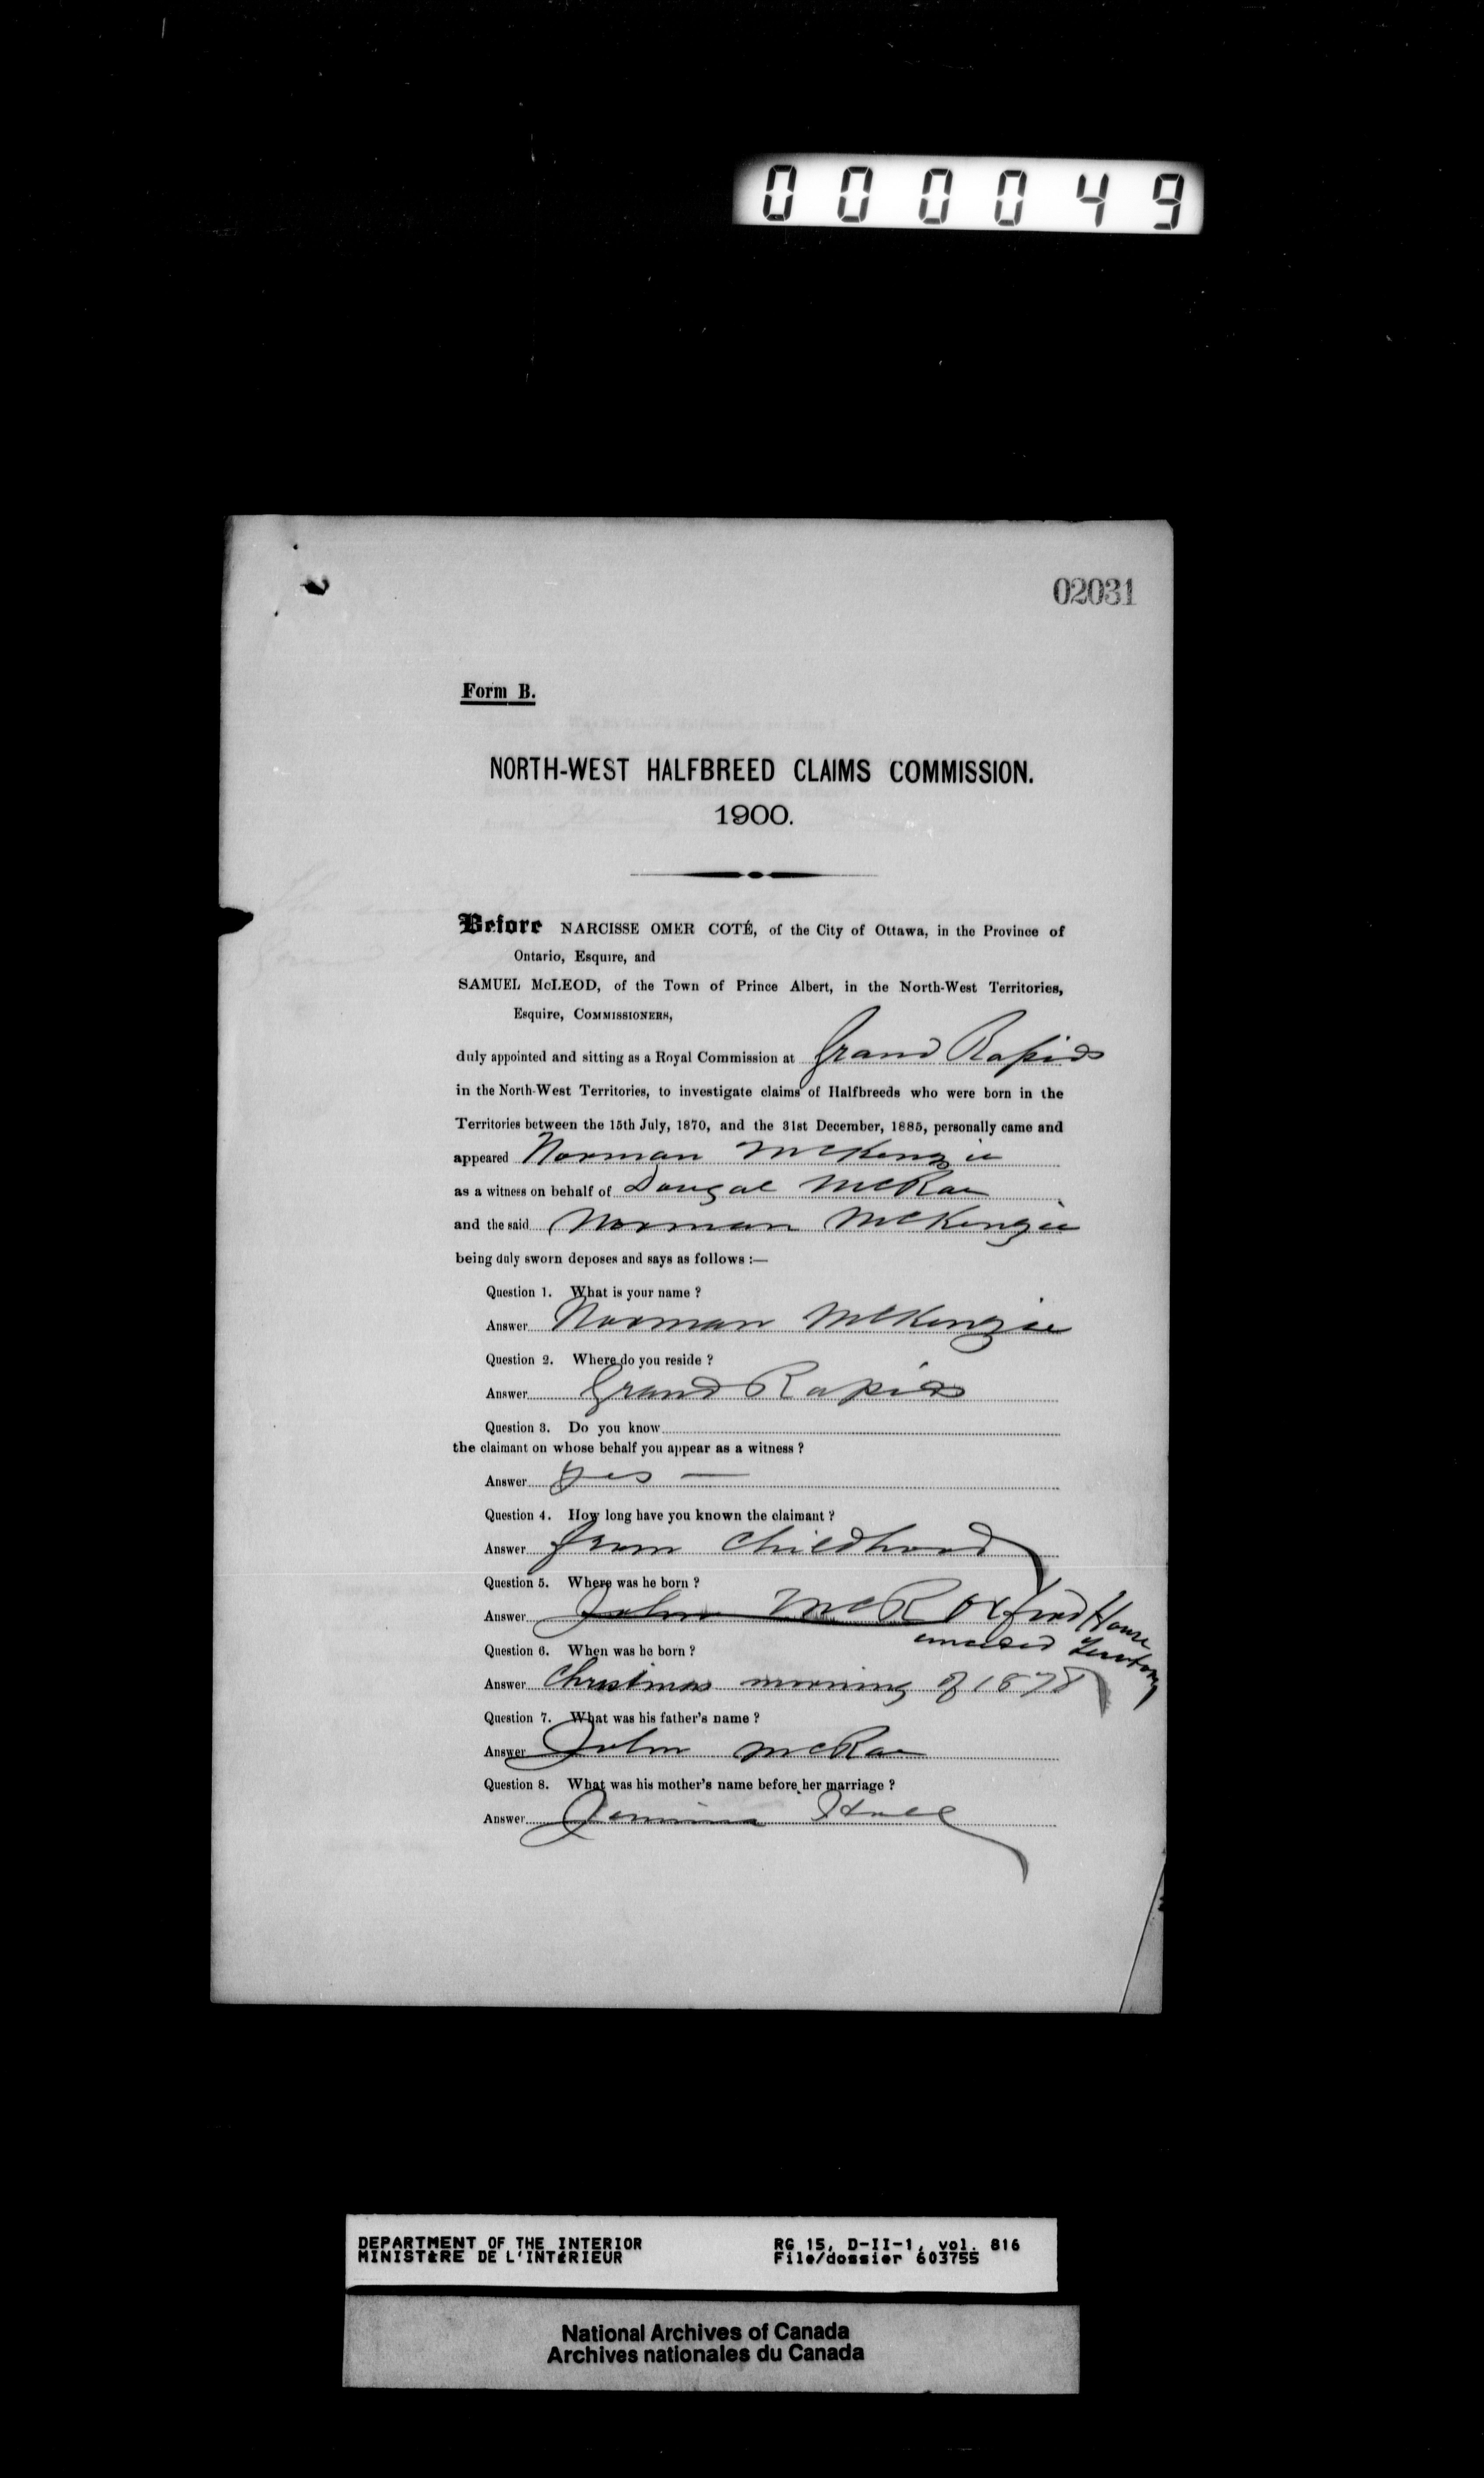 000049
02031
Form B.
NORTH-WEST HALFBREED CLAIMS COMMISSION.
1900.
Before NARCISSE OMER COTÉ, of the City of Ottawa, in the Province of
Ontario, Esquire, and
SAMUEL McLEOD, of the Town of Prince Albert, in the North-West Territories,
Esquire, COMMISSIONERS,
duly appointed and sitting as a Royal Commission at Grand Rapids
in the North-West Territories, to investigate claims of Halfbreeds who were born in the
Territories between the 15th July, 1870, and the 31st December, 1885, personally came and
appeared Norman McKenzie
as a witness on behalf of Dougal McRae
and the said Norman McKenzie
being duly sworn deposes and says as follows :—
Question 1. What is your name ?
Answer Norman McKenzie
Question 2. Where do you reside ?
Answer Grand Rapids
Question 3. Do you know
the claimant on whose behalf you appear as a witness ?
Answer yes —
Question 4. How long have you known the claimant ?
Answer from childhood
Question 5. Where was he born ?
Answer John McR Oxford House
unceded Territory
Question 6. When was he born ?
Answer Christmas morning of 1878
Question 7. What was his father's name ?
Answer John McRae
Question 8. What was his mother's name before her marriage ?
Answer Jemima
DEPARTMENT OF THE INTERIOR
MINISTÈRE DE L'INTÉRIEUR
RG 15, D-II-1, vol. 816
File/dossier 603755
National Archives of Canada
Archives nationales du Canada